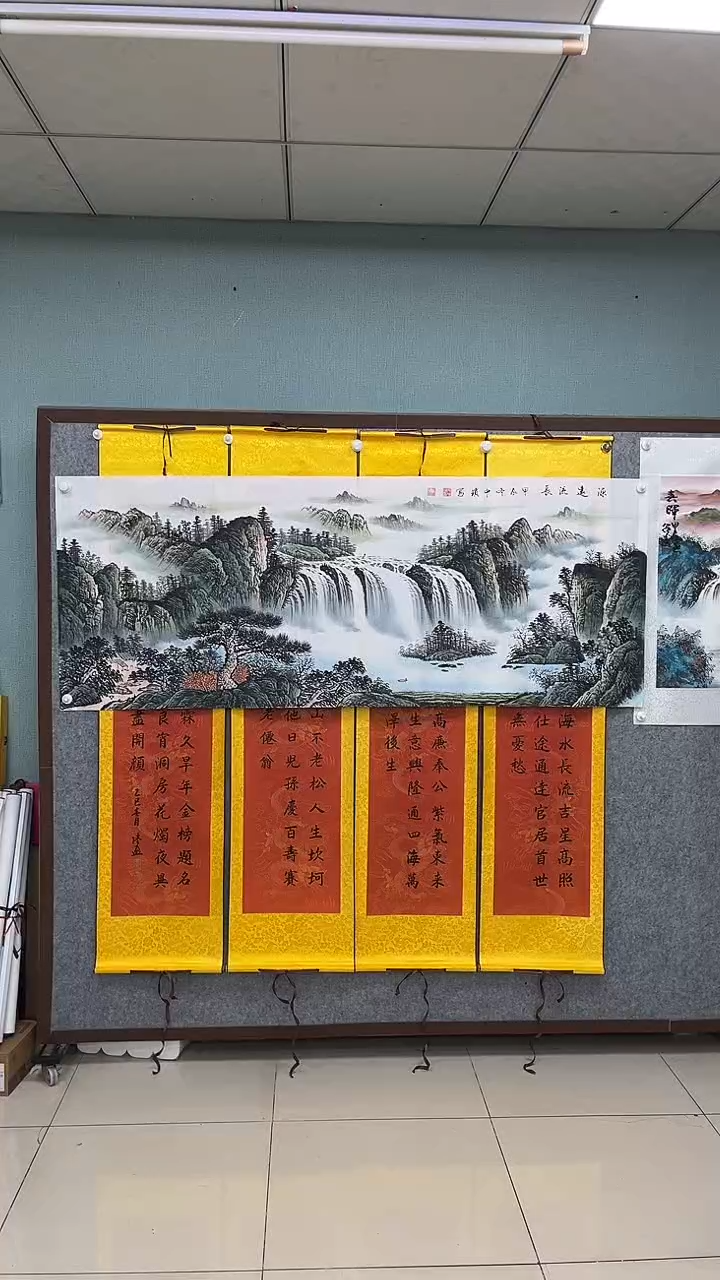 源遠流長 甲辰冬中
海水長流吉星高照
仕途通達官居首世
無憂愁
高廉奉公紫氣東来
生意興隆通四海萬
澤後生
山不老松人生坎坷
他日児孫慶百壽賽
老僊翁
霖久旱年金榜題名
良宵洞房花燭夜具
盡開顔 乙巳春月